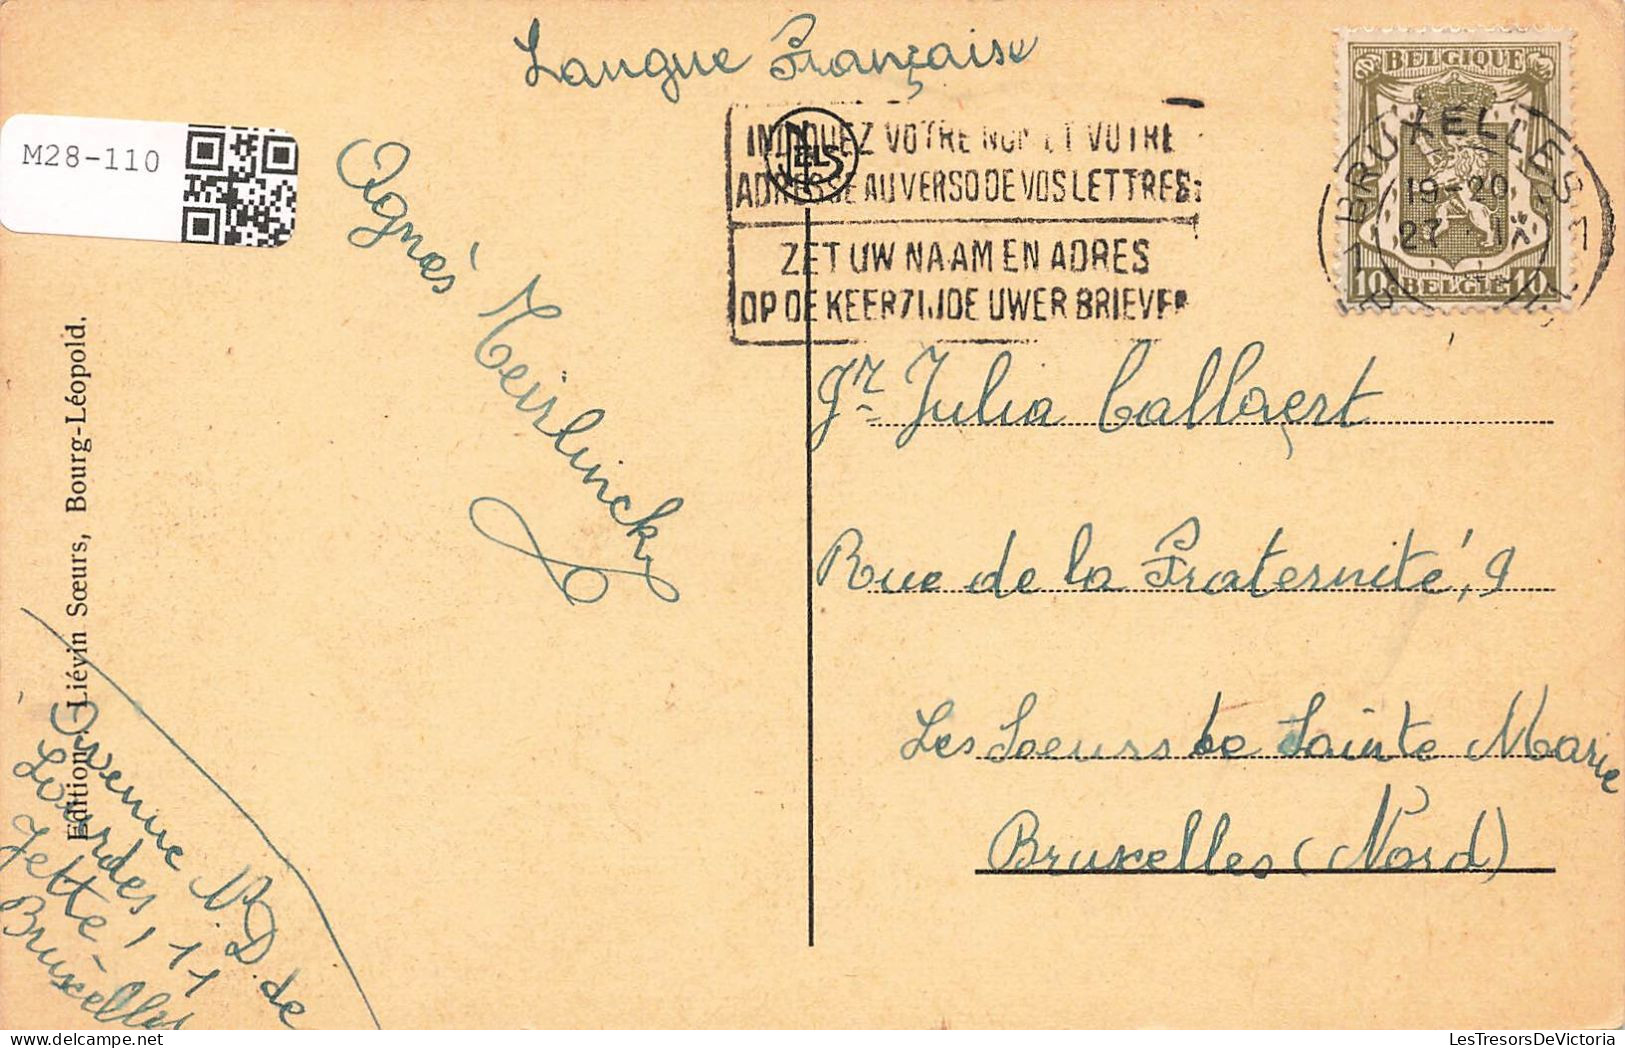 Langue Française
M28-110
NELS
INDIQUEZ VOTRE NOM ET VOTRE
ADRESSE AU VERSO DE VOS LETTRES
ZET UW NAAM EN ADRES
OP DE KEERZIJDE UWER BRIEVEN
BELGIQUE
BRUXELLES
19-20
27 IX
10 BELGIE 10
Agnès
Meirlinck
Jr Julia Callaert
Rue de la Fraternité, 9
Les Soeurs de Sainte Marie
Bruxelles (Nord)
Edition: Liévin Sœurs, Bourg-Léopold.
Avenue N.D. de
Lourdes, 11
Jette
Bruxelles
LesTresorsDeVictoria